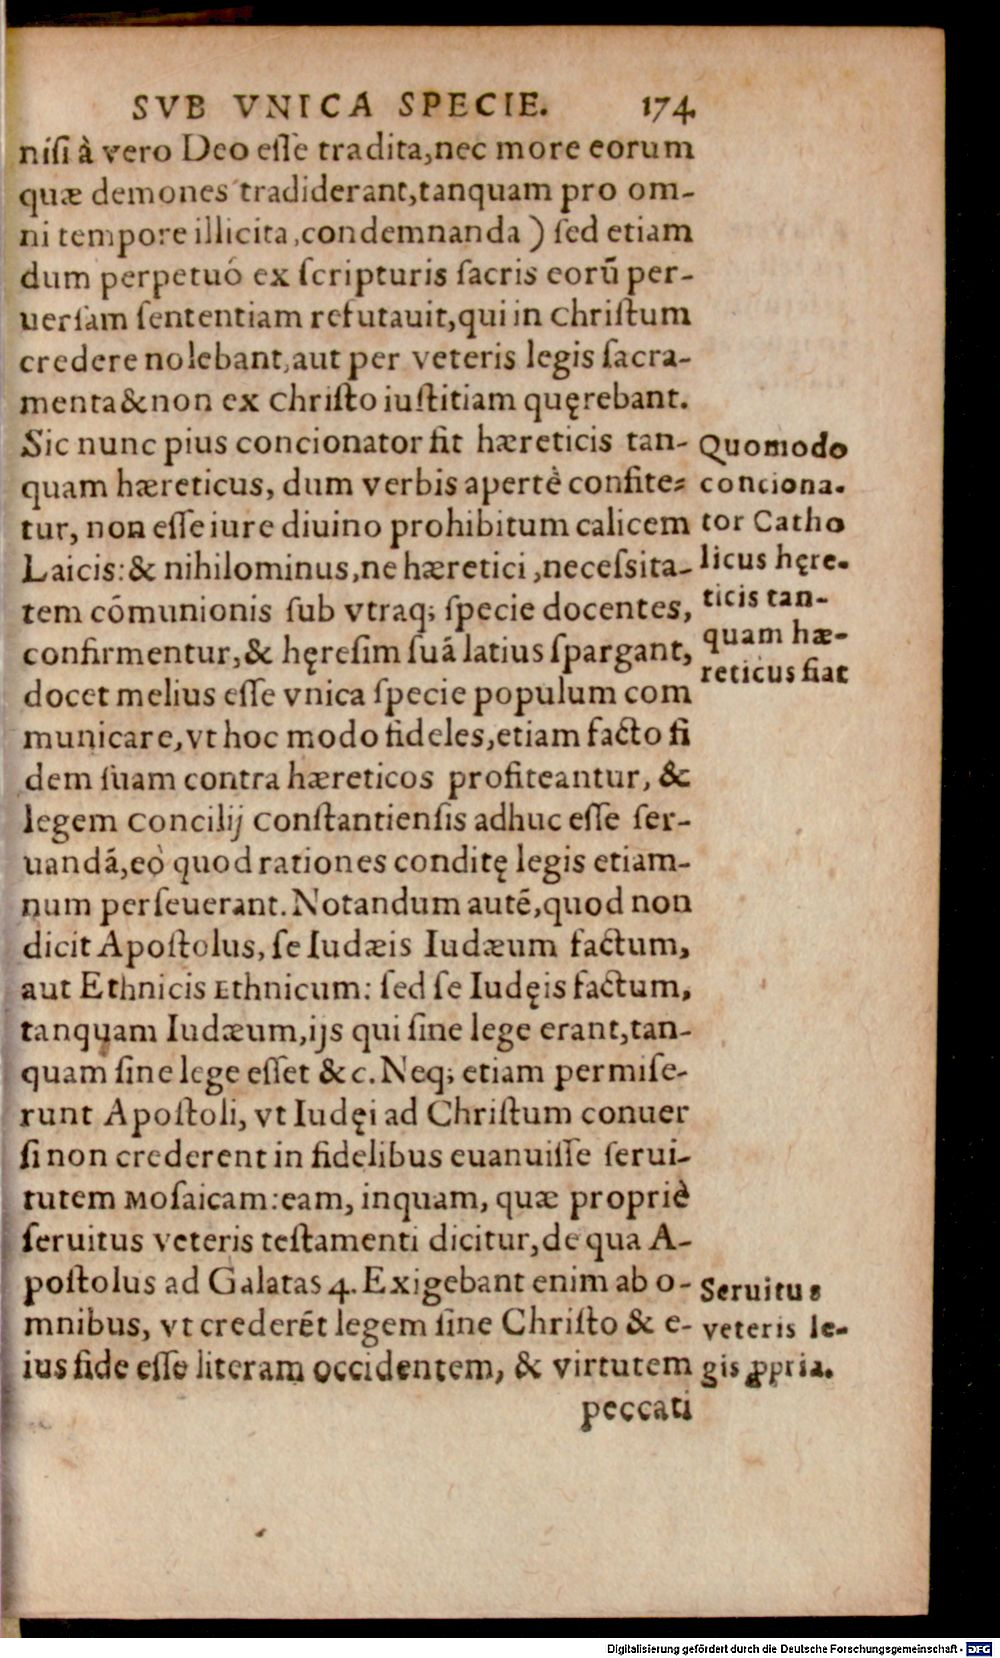 SVB VNICA SPECIE. 174
nisi à vero Deo esse tradita, nec more eorum
quæ demones tradiderant, tanquam pro om-
ni tempore illicita, condemnanda ) sed etiam
dum perpetuó ex scripturis sacris eorũ per-
uersam sententiam refutauit, qui in christum
credere nolebant, aut per veteris legis sacra-
menta & non ex Christo iustitiam quęrebant.
Sic nunc pius concionator fit hæreticis tan-
quam hæreticus, dum verbis apertè confite-
tur, non esse iure diuino prohibitum calicem
Laicis: & nihilominus, ne hæretici, necessita-
tem cõmunionis sub vtraq; specie docentes,
confirmentur, & hęresim suã latius spargant,
docet melius esse vnica specie populum com
municare, vt hoc modo fideles, etiam facto fi
dem suam contra hæreticos profiteantur, &
legem Concilij Constantiensis adhuc esse ser-
uandã, eò quod rationes conditę legis etiam-
num perseuerant. Notandum autẽ, quod non
dicit Apostolus, se Iudæis Iudæum factum,
aut Ethnicis Ethnicum: sed se Iudęis factum,
tanquam Iudæum, ijs qui sine lege erant, tan-
quam sine lege esset &c. Neq; etiam permise-
runt Apostoli, vt Iudęi ad Christum conuer
si non crederent in fidelibus euanuisse serui-
tutem Mosaicam: eam, inquam, quæ propriè
seruitus veteris testamenti dicitur, de qua A-
postolus ad Galatas 4. Exigebant enim ab o-
mnibus, vt crederẽt legem sine Christo & e-
ius fide esse literam occidentem, & virtutem
peccati
Quomodo
conciona-
tor Catho
licus hęre-
ticis tan-
quam hæ-
reticus fiat
Seruitus
veteris le-
gis ꝓpria.
Digitalisierung gefördert durch die Deutsche Forschungsgemeinschaft - DFG